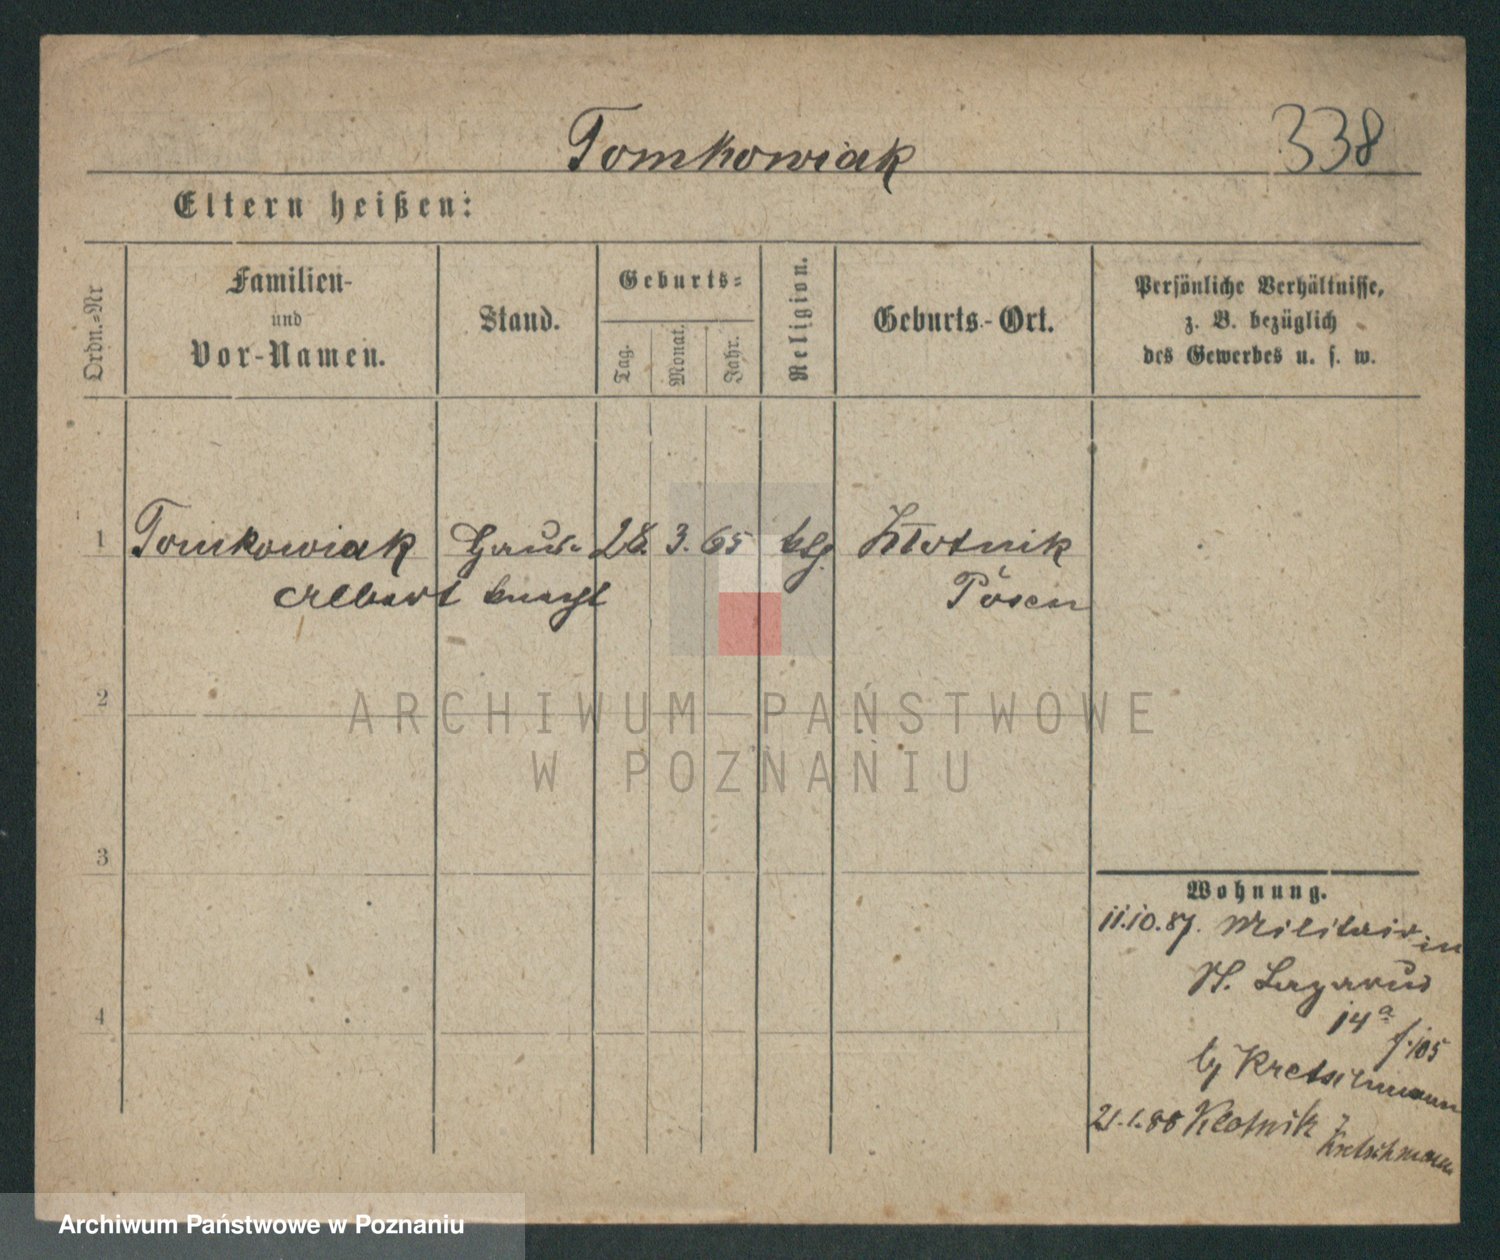 Tomkowiak
338
Eltern heißen:
Ordn.=Nr
Familien-
und
Vor-Namen.
Stand.
Geburts=
Tag.
Monat.
Jahr.
Religion.
Geburts.-Ort.
Persönliche Verhältnisse,
z. B. bezüglich
des Gewerbes u. s. w.
1 Tomkowiak Haus- 28. 3. 65 ktg
Albert knecht Posen
2
ARCHIWUM PAŃSTWOWE
W POZNANIU
3
4
Wohnung.
11.10.87. Militair in
St. Lazarus
14a
f. 105
Kretschmann
21.1.88 Klotnik
Kretschmann
Archiwum Państwowe w Poznaniu